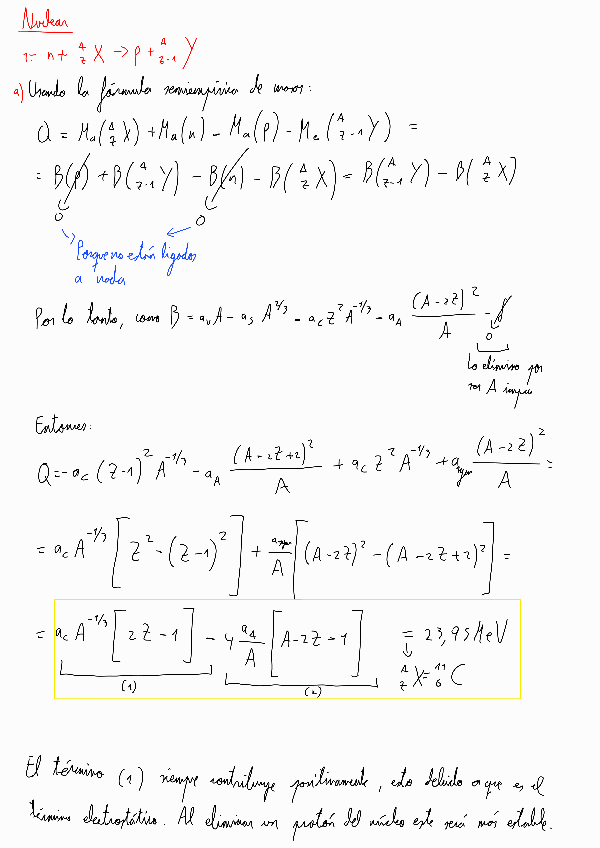 Nuclear
1- n + ᴬ_Z X → p + ᴬ_Z-1 Y
a) Usando la fórmula semiempírica de masas:
Q = Ma(ᴬ_Z X) + Ma(n) - Ma(p) - Ma(ᴬ_Z-1 Y) =
= B(p) + B(ᴬ_Z-1 Y) - B(n) - B(ᴬ_Z X) = B(ᴬ_Z-1 Y) - B(ᴬ_Z X)
0 0
Porque no están ligados
a nada
Por lo tanto, como B = a_v A - a_s A^2/3 - a_c Z² A^-1/3 - a_A (A-2Z)²/A - δ
0
Lo elimino por
ser A impar
Entonces:
Q = -a_c (Z-1)² A^-1/3 - a_A (A-2Z+2)²/A + a_c Z² A^-1/3 + a_sym (A-2Z)²/A =
= a_c A^-1/3 [Z² - (Z-1)²] + a_sym/A [(A-2Z)² - (A-2Z+2)²] =
= a_c A^-1/3 [2Z-1] - 4 a_A/A [A-2Z-1] = 23,95 MeV
(1) (2) ᴬ_Z X = ¹¹_6 C
El término (1) siempre contribuye positivamente, esto debido a que es el
término electrostático. Al eliminar un protón del núcleo este será más estable.